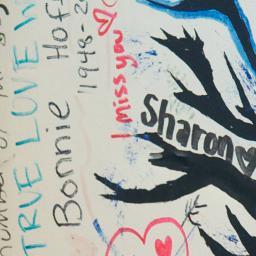 TRUE LOVE
Bonnie Hof
1948-2
I miss you
Sharon